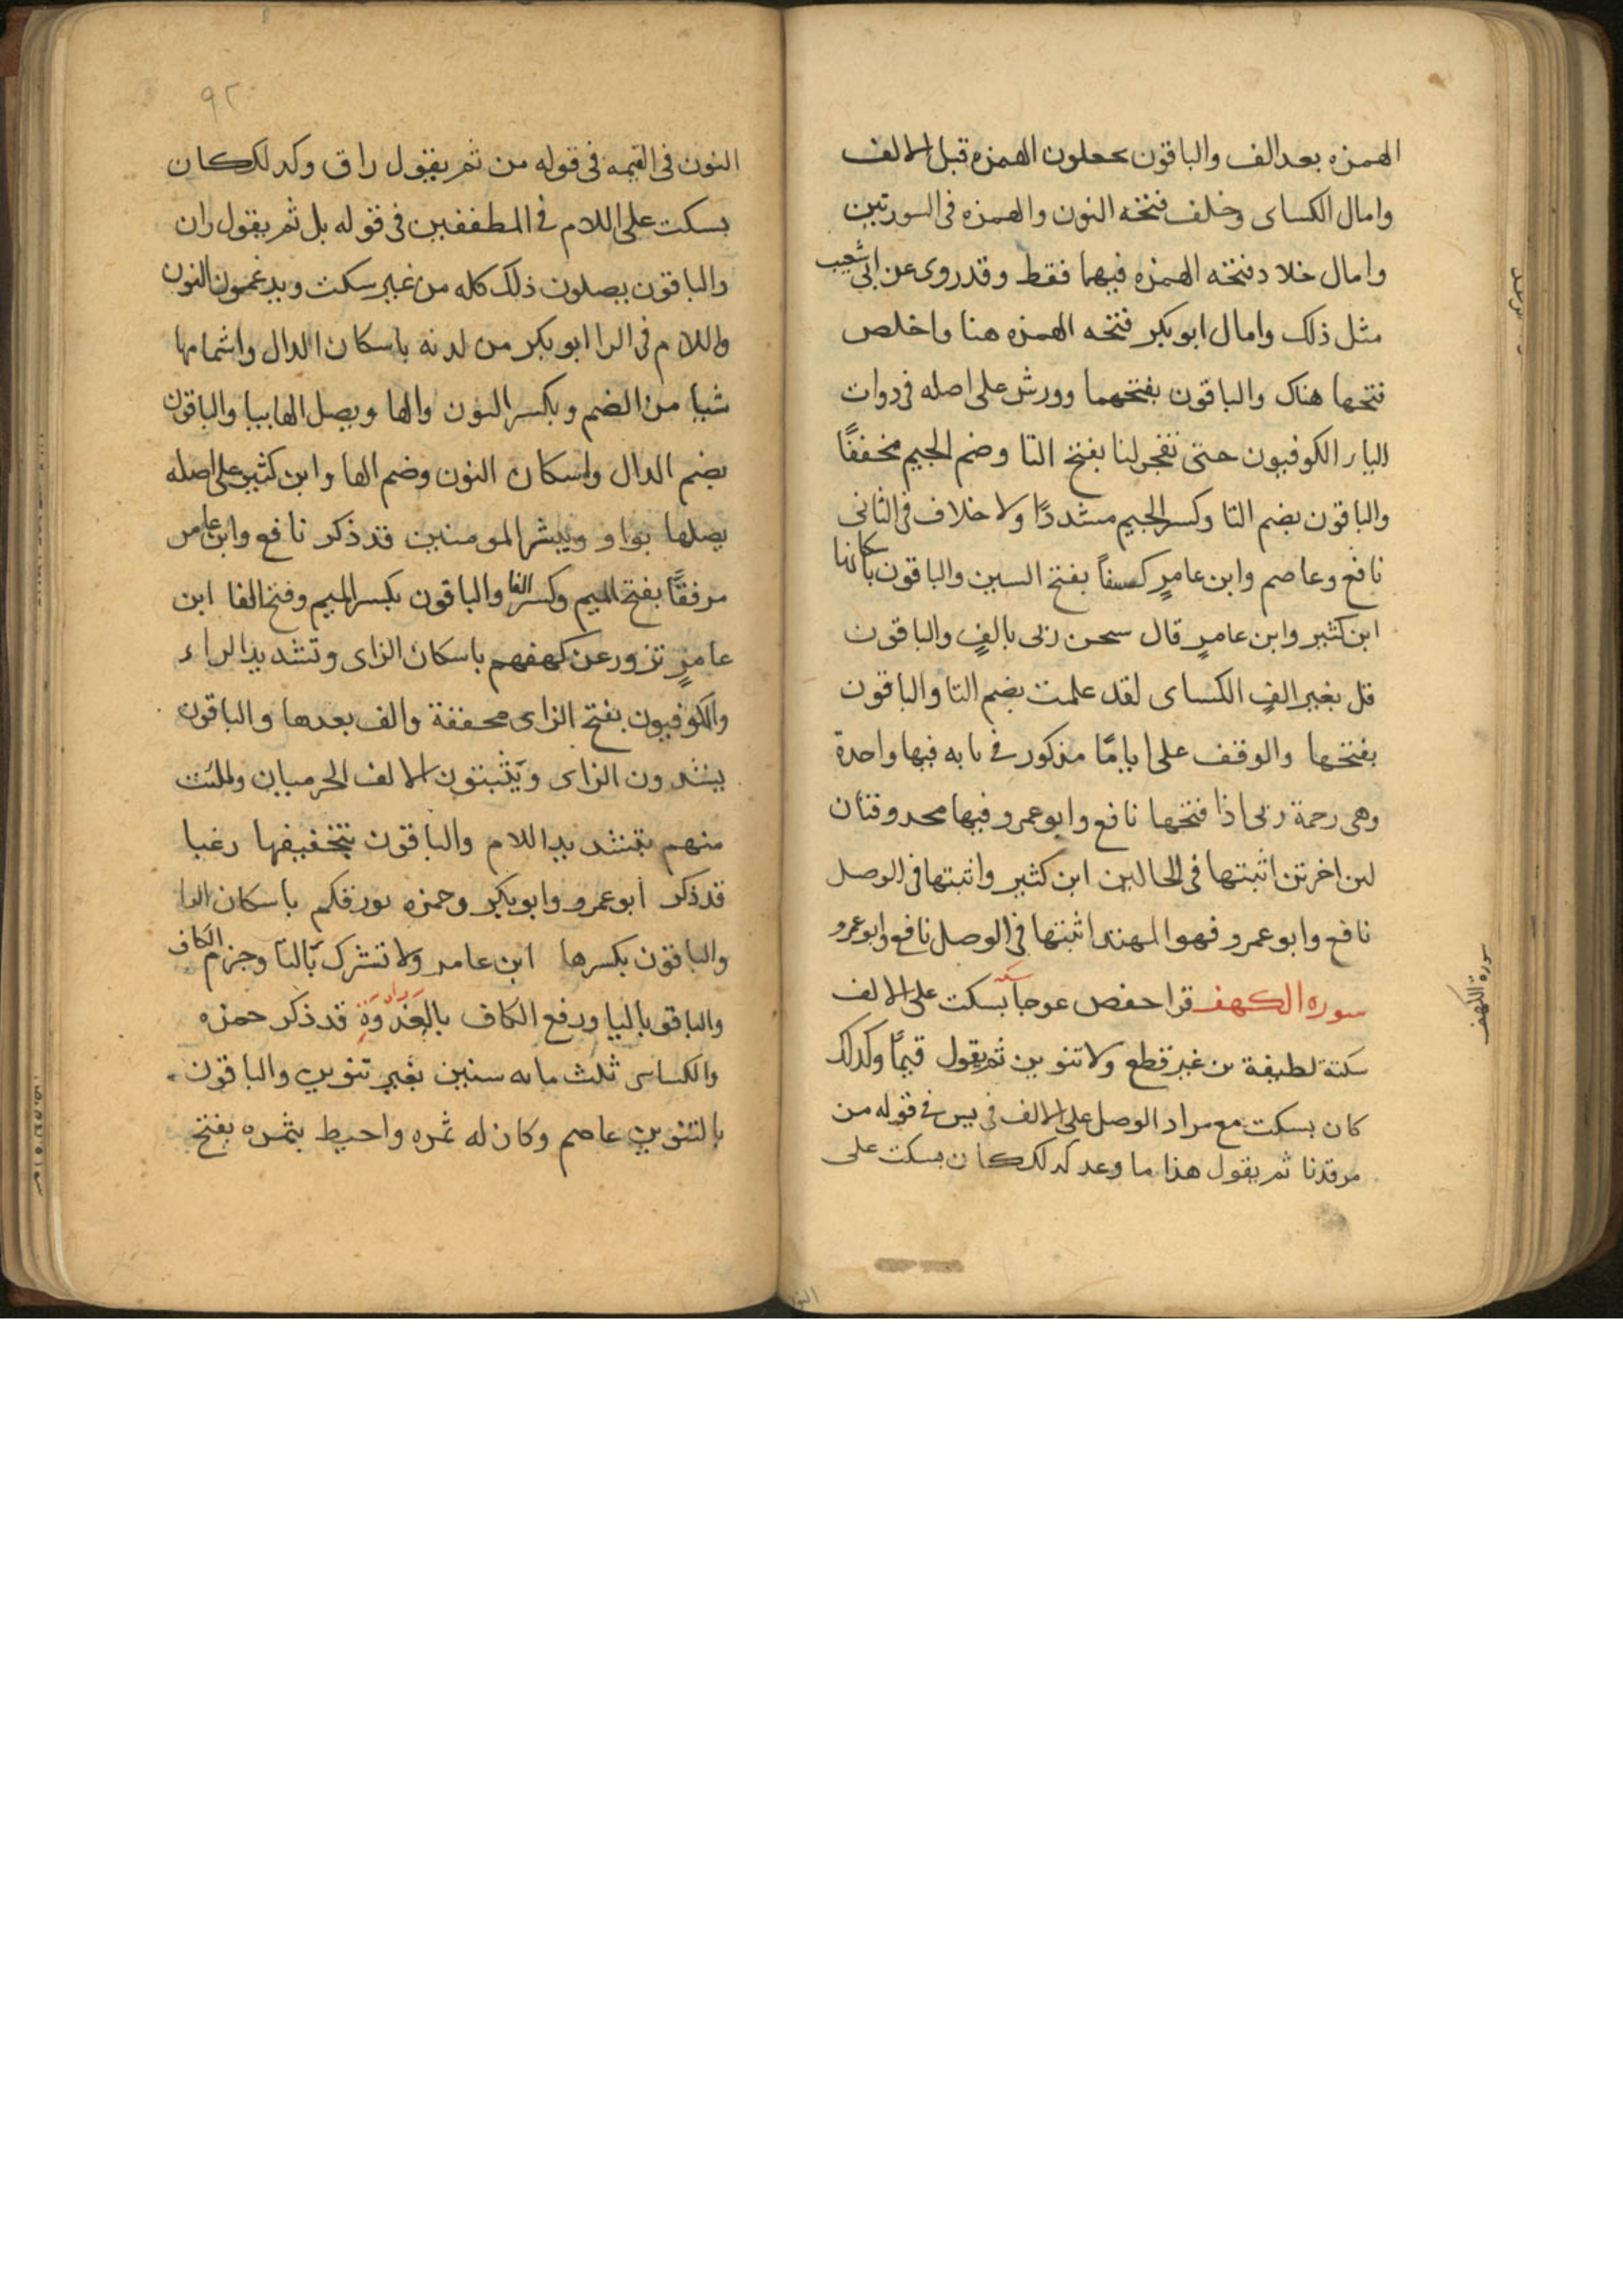 الهمزه بعد الف والباقون يجعلون الهمزه قبل الالف
وامال الكساى وخلف فتحه النون والهمزه فى السورتين
وامال خلاد فتحه الهمزه فيهما فقط وقد روى عن ابى شعيب
مثل ذلك وامال ابو بكر فتحه الهمزه هنا واخلص
فتحها هناك والباقون بفتحهما وورش على اصله فى ذوات
اليا الكوفيون حتى تفجر لنا بفتح التا وضم الجيم مخففًا
والباقون بضم التا وكسر الجيم مشددًا ولا خلاف فى الثانى
نافع وعاصم وابن عامرٍ كسفاً بفتح السين والباقون باسكانها
ابن كثير وابن عامرٍ قال سبحن ربى بالفٍ والباقون
قل بغير الفٍ الكساى لقد علمت بضم التا والباقون
بفتحها والوقف على ايامًا مذكور فى بابه فيها واحدة
وهى رحمة ربى اذا فتحها نافع وابو عمرو فيها محذوفتان
لئن اخرتن اثبتها فى الحالين ابن كثير واثبتها فى الوصل
نافع وابو عمرو فهو المهتد اثبتها فى الوصل نافع وابو عمرو
سوره الكهف قرا حفص عوجا سكته بسكت على الالف
سكتة لطيفة من غير قطع ولا تنوين ثم يقول قيمًا وكذلك
كان بسكت مع مراد الوصل على الالف فى يس فى قوله من
مرقدنا ثم يقول هذا ما وعد كذلك كان بسكت على
سورة الكهف
٩٢
النون فى القيمه فى قوله من ثم يقول راق وكذلك كان
بسكت على اللام فى المطففين فى قوله بل ثم يقول ران
والباقون يصلون ذلك كله من غير سكت ويدغمون النون
واللام فى الرا ابو بكر من لدنه باسكان الدال واشمامها
شيا من الضم وبكسر النون والها ويصل الها بيا والباقون
بضم الدال واسكان النون وضم الها وابن كثير على اصله
يصلها بواو ويبشر المومنين قد ذكر نافع وابن عامر
مرفقًا بفتح الميم وكسر الفا والباقون بكسر الميم وفتح الفا ابن
عامرٍ تزور عن كهفهم باسكان الزاى وتشديد الراء
والكوفيون بفتح الزاى مخففة والف بعدها والباقون
يشددون الزاى ويثبتون الالف الحرميان ولملئت
منهم بتشديد اللام والباقون بتخفيفها رعبا
قد ذكر ابو عمرو وابو بكر وحمزه بورقكم باسكان الرا
والباقون بكسرها ابن عامر ولا تشرك بالتا وجزم الكاف
والباقون باليا ورفع الكاف بالغدوة قد ذكر حمزه
والكساى ثلث مايه سنين بغير تنوين والباقون
بالتنوين عاصم وكان له ثمره واحيط بثمره بفتح